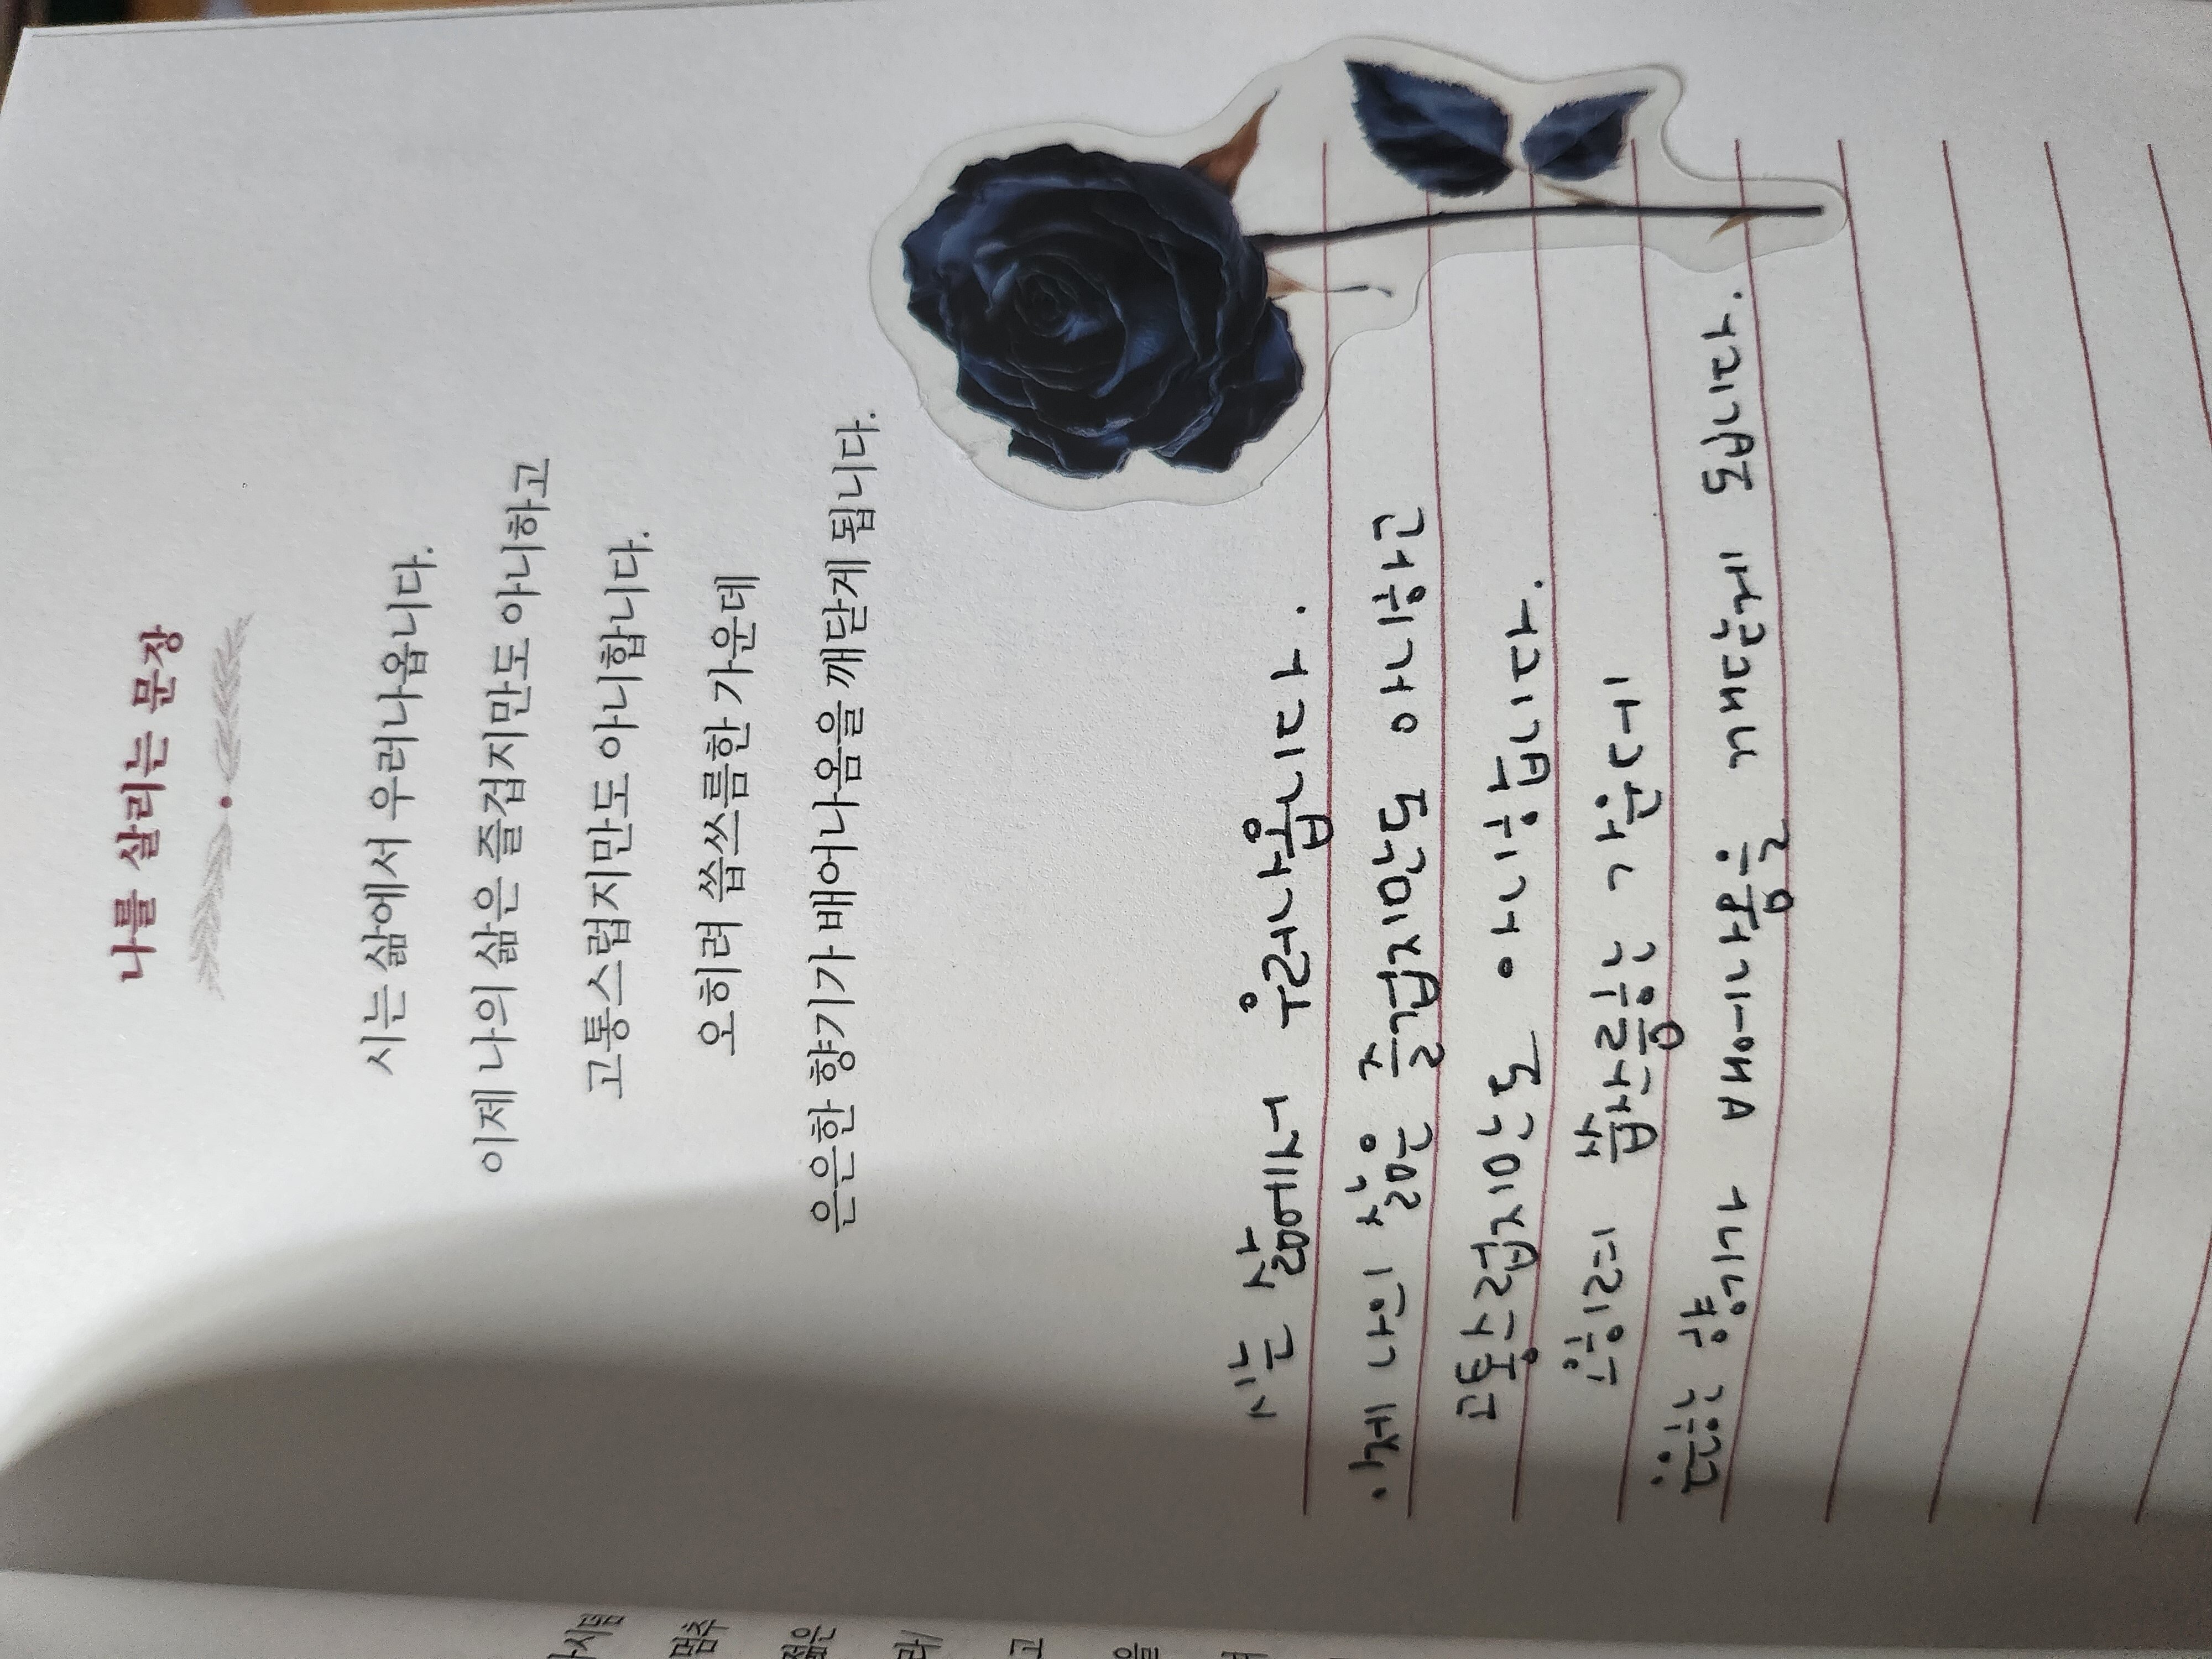 나를 살리는 문장
시는 삶에서 우러나옵니다.
이제 나의 삶은 즐겁지만도 아니하고
고통스럽지만도 아니합니다.
오히려 씁쓰름한 가운데
은은한 향기가 배어나옴을 깨닫게 됩니다.
시는 삶에서 우러나옵니다.
이제 나의 삶은 즐겁지만도 아니하고
고통스럽지만도 아니합니다.
오히려 씁쓰름한 가운데
은은한 향기가 배어나옴을 깨닫게 됩니다.
멈추
고
을